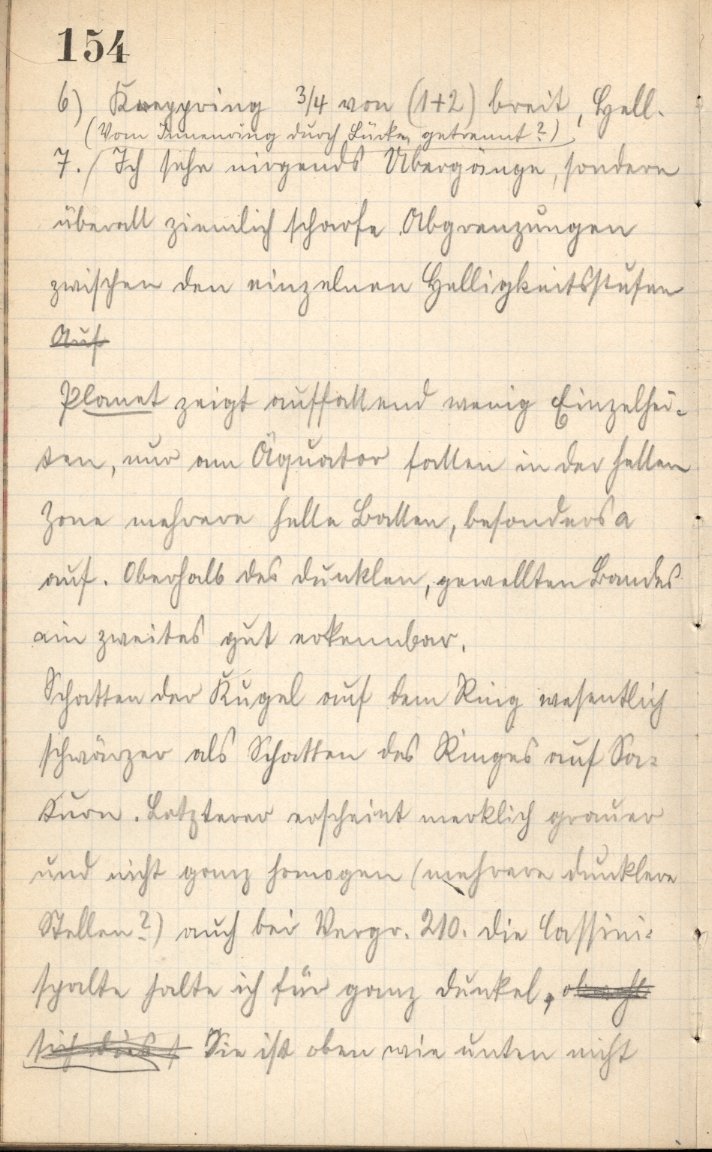 154
6) Kreppring 3/4 von (1+2) breit, Hell.
(Vom Innenring durch Lücke getrennt?)
7. / Ich sehe nirgends Übergänge, sondern
überall ziemlich scharfe Abgrenzungen
zwischen den einzelnen Helligkeitsstufen
Auf
Planet zeigt auffallend wenig Einzelhei-
ten, nur am Äquator fallen in der hellen
Zone mehrere helle Ballen, besonders a
auf. Oberhalb des dunklen, gewellten Bandes
ein zweites gut erkennbar.
Schatten der Kugel auf dem Ring wesentlich
schwärzer als Schatten des Ringes auf Sa-
turn. Letzterer erscheint merklich grauer
und nicht ganz homogen (mehrere dunklere
Stellen?) auch bei Vergr. 210. Die Cassini-
spalte halte ich für ganz dunkel, obwohl
sich dies Sie ist oben wie unten nicht